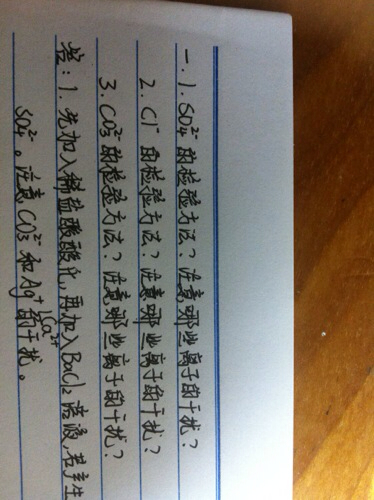 一.1.SO₄²⁻的检验方法?注意哪些离子的干扰?
2.Cl⁻的检验方法?注意哪些离子的干扰?
3.CO₃²⁻的检验方法?注意哪些离子的干扰?
答:1.先加入稀盐酸酸化,再加入BaCl₂溶液,若产生
SO₄²⁻。注意CO₃²⁻和Ag⁺、Ca²⁺的干扰。